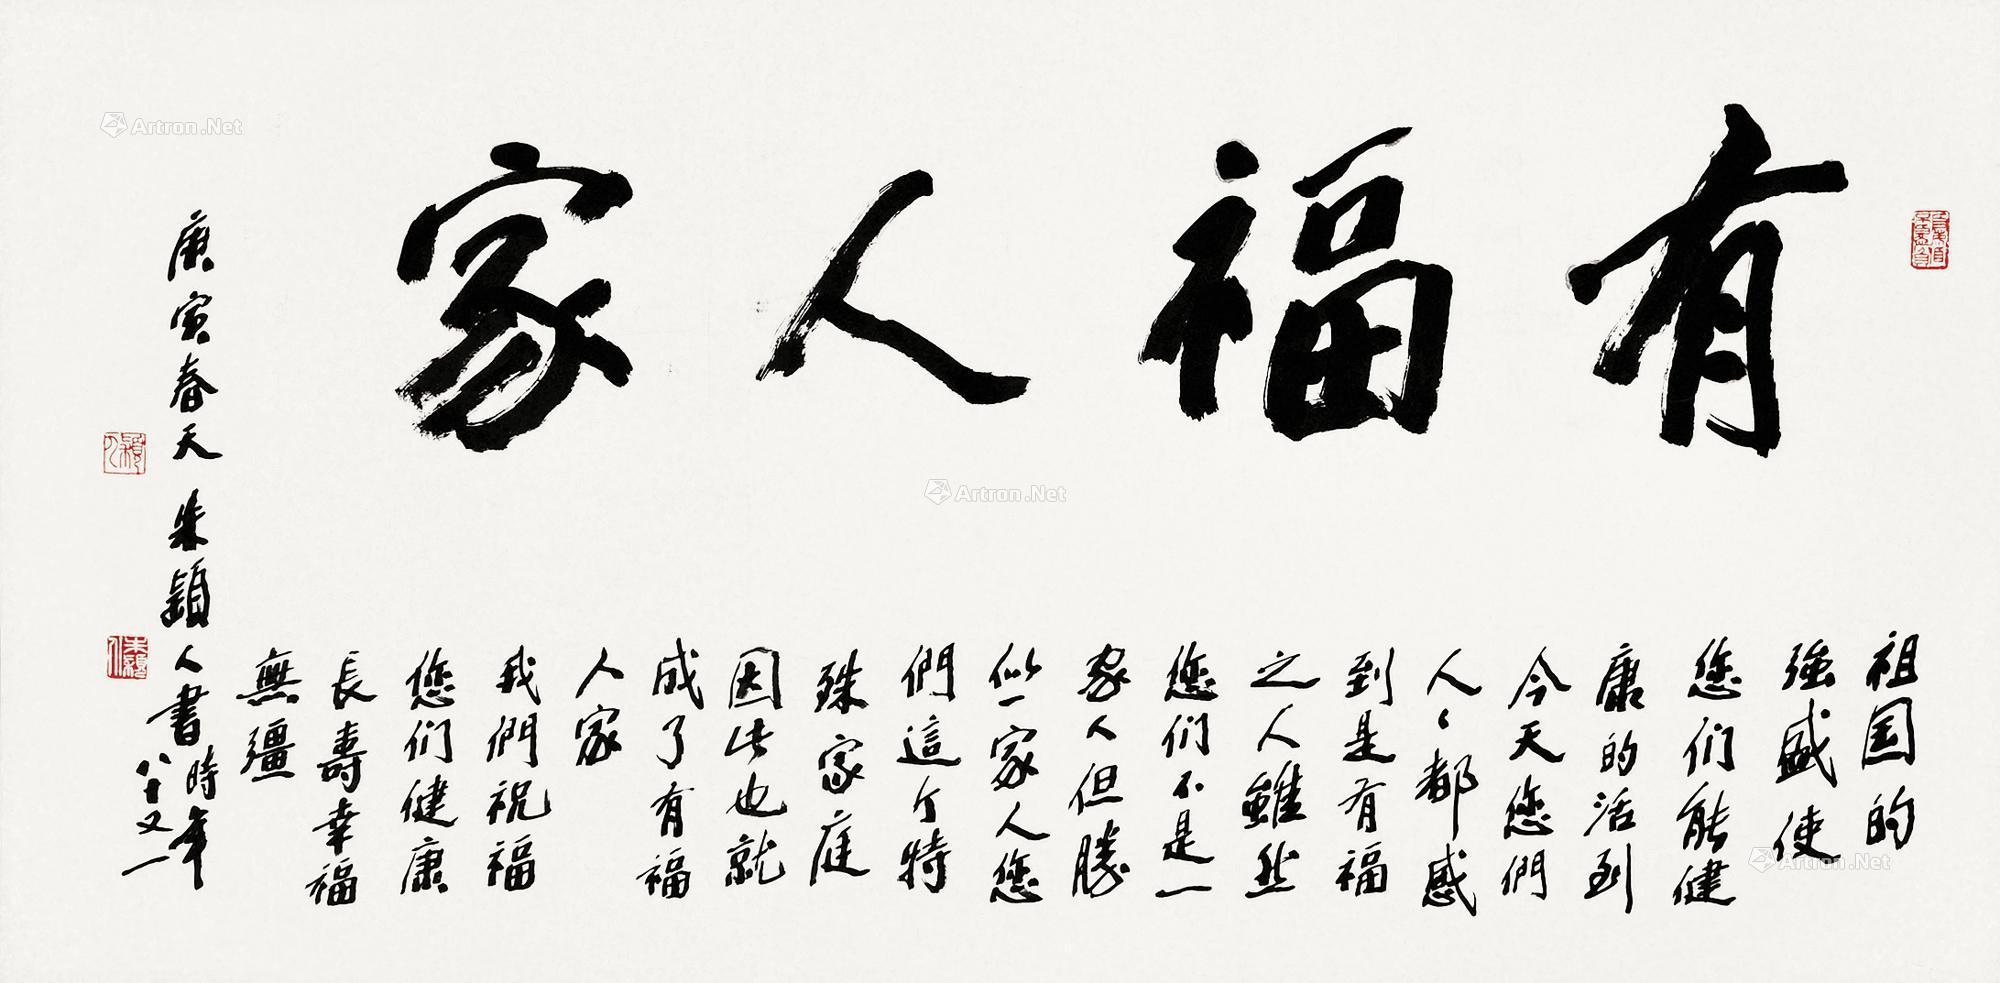 有福人家
祖国的
強盛使
您们能健
康的活到
今天您們
人々都感
到是有福
之人雖然
您们不是一
家人但勝
似一家人您
們這个特
殊家庭
因此也就
成了有福
人家
我們祝福
您们健康
長壽幸福
無疆
庚寅春天 朱穎人書時年
八十又一
Artron.Net
Artron.Net
Artron.Net